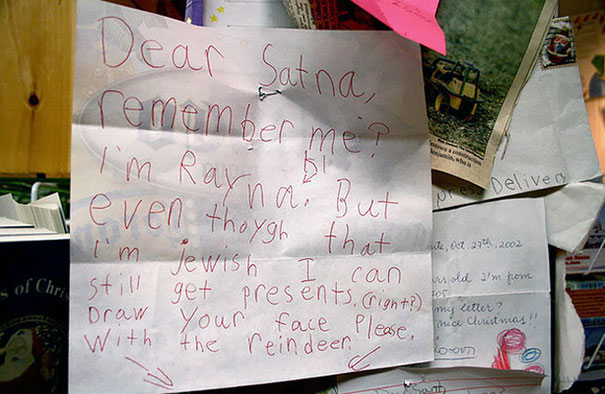 Dear Satna,
remember me?
I'm Rayna. But
even thoygh that
i'm Jewish I can
still get presents. (right?)
Draw your face Please,
With the reindeer.
press Delivery
Oct. 27th, 2002
old I'm from
my letter?
nice Christmas!!
s of Chris